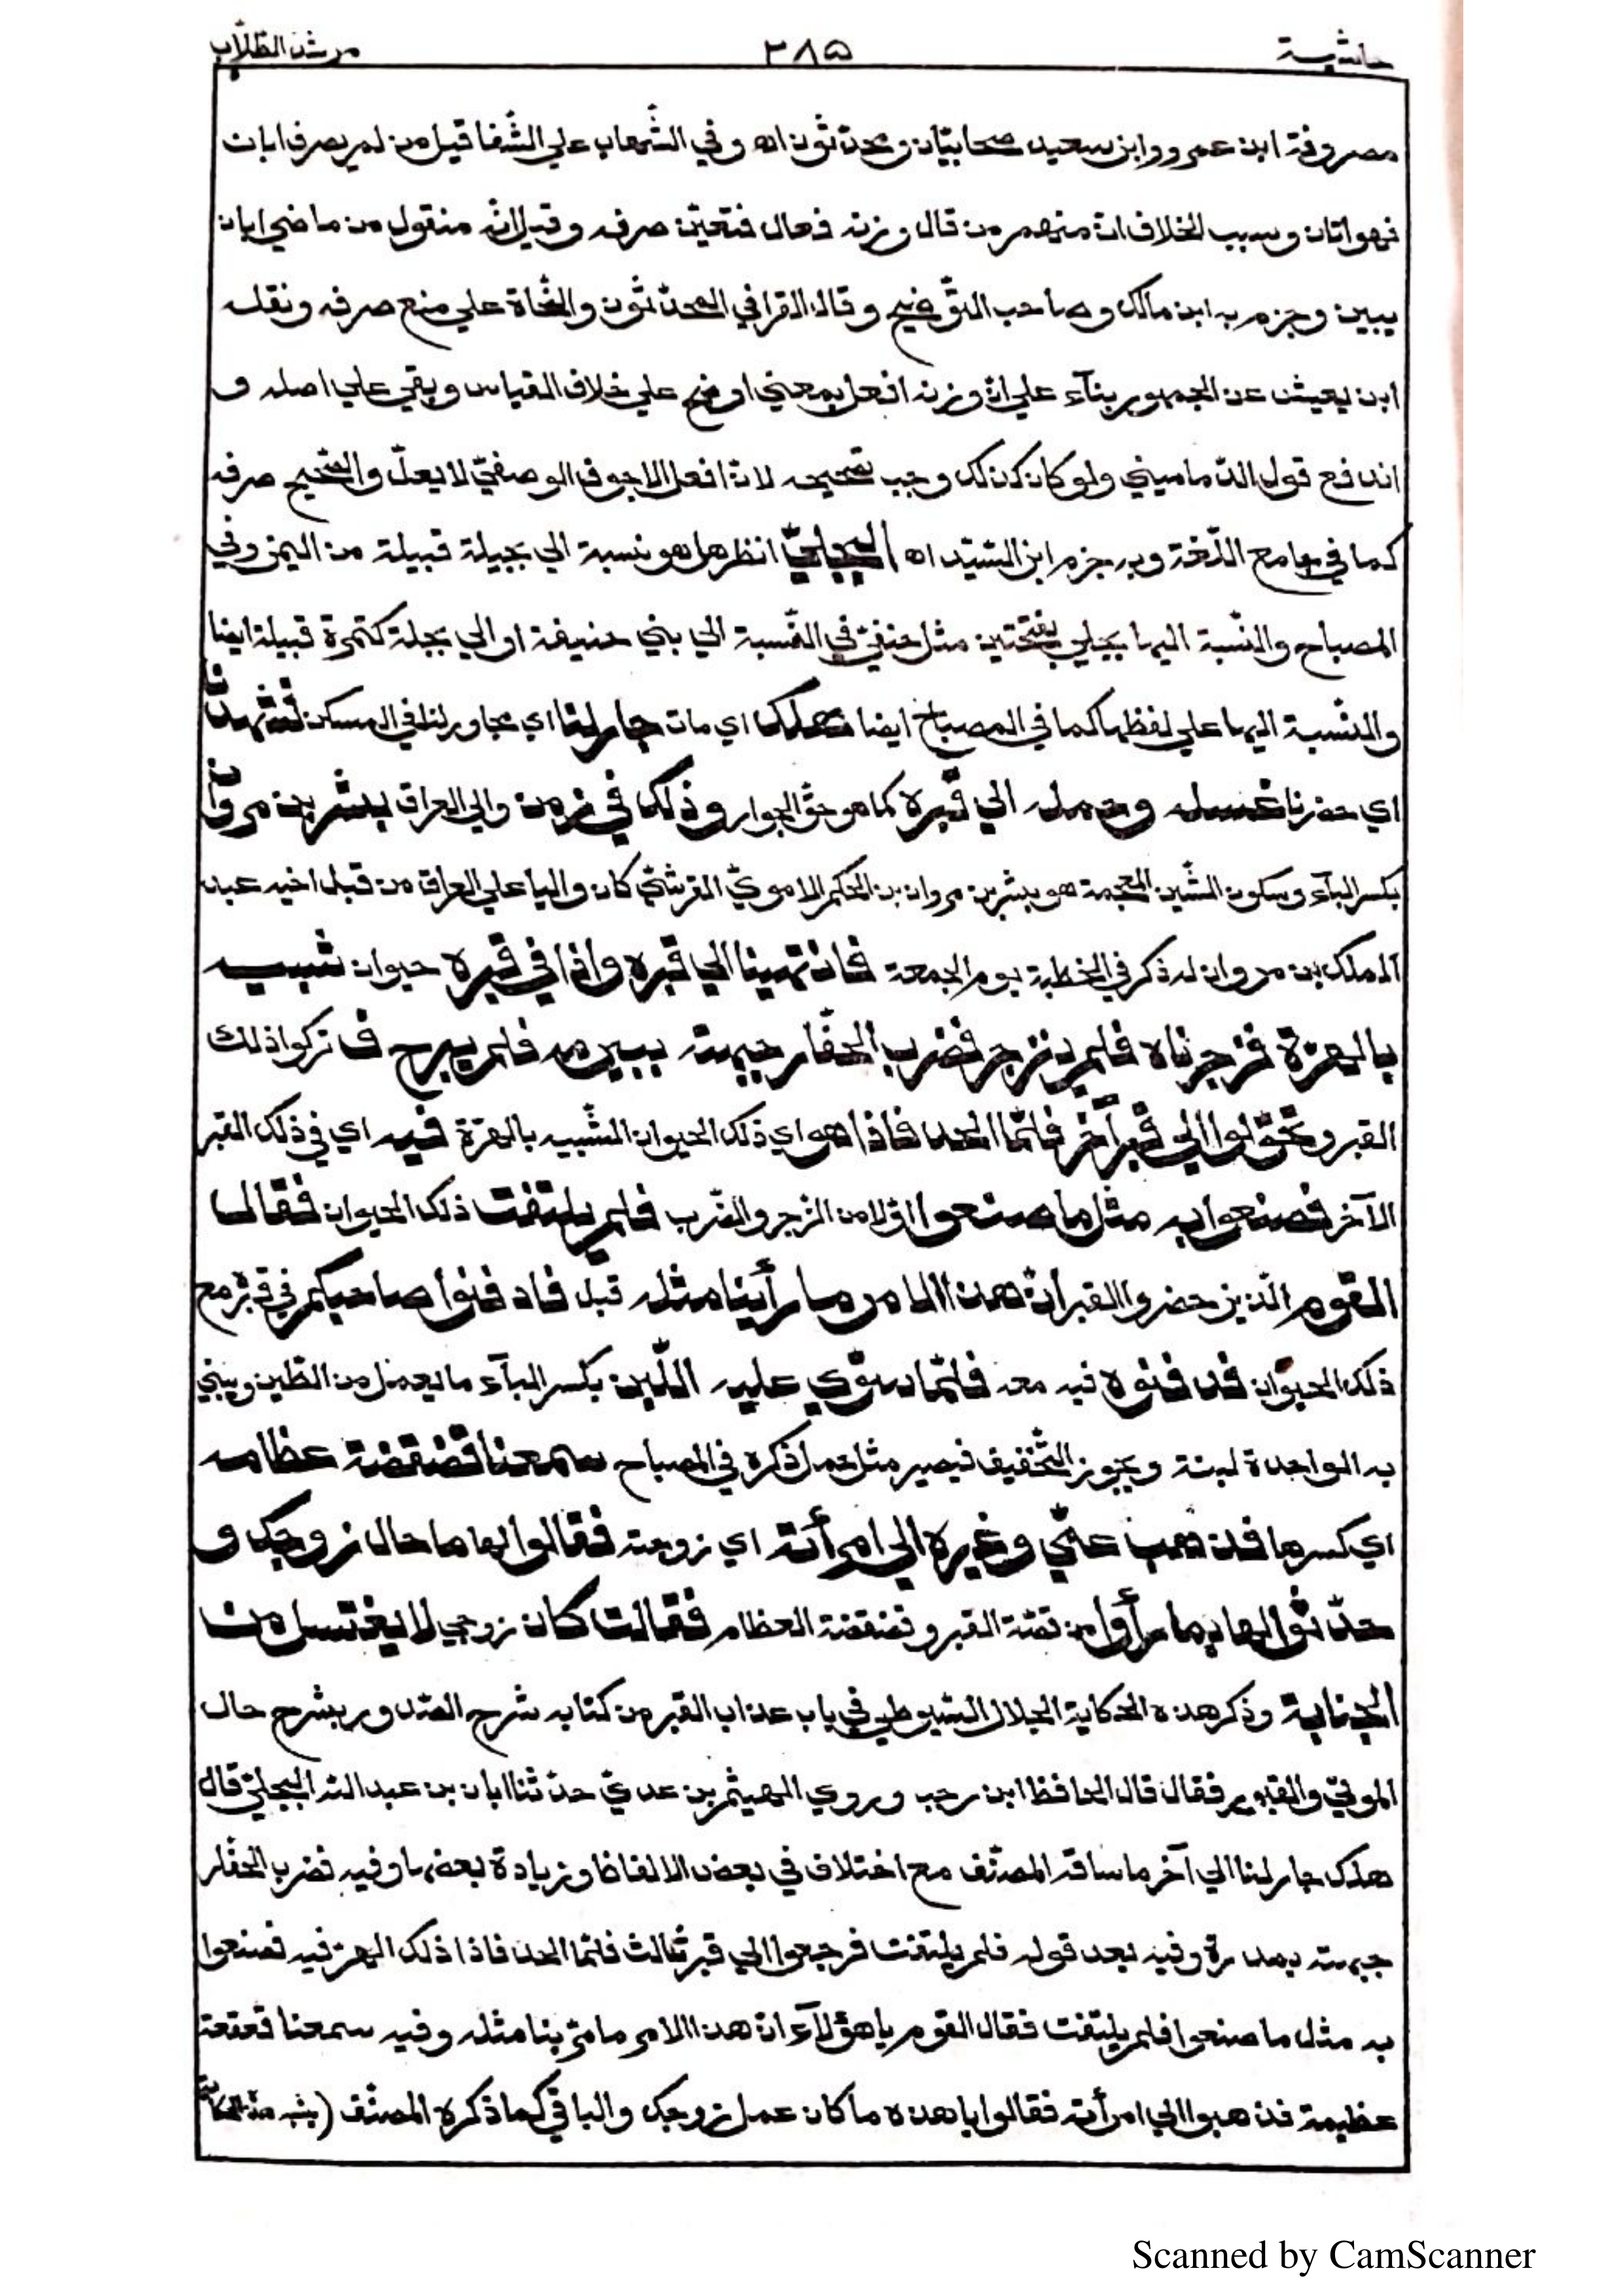 حاشية ٣٨٥ مرشد الطلّاب
مصروفة ابن عمرو وابن سعيد صحابيّان ومحدّثون اه وفي الشّهاب علي الشّفا قيل من لم يصرف ابان
فهو اتان وسبب الخلاف انّ منهم من قال وزنه فعال فتعيّن صرفه وقيل انّه منقول من ماضي ابان
يبين وجزم به ابن مالك وصاحب التّوضيح وقال القرافي المحدّثون والنّحاة علي منع صرفه ونقله
ابن يعيش عن الجمهور بنآء علي انّ وزنه افعل بمعني اوضح علي خلاف القياس وبقي علي اصله و
اندفع قول الدّماميني ولو كان كذلك وجب تصحيحه لانّ افعل الاجوف الوصفيّ لا يعلّ والصّحيح صرفه
كما في جامع اللّغة وبه جزم ابن السّيّد اه البجليّ انظر هل هو نسبة الي بجيلة قبيلة من اليمن وفي
المصباح والنّسبة اليها بجلي بفتحتين مثل حنفيّ في النّسبة الي بني حنيفة او الي بجلة كتمرة قبيلة ايضا
والنّسبة اليها علي لفظها كما في المصباح ايضا هلك اي مات جار لنا اي مجاور لنا في المسكن فشهدنا
اي حضرنا غسله وحمله الي قبره كما هو حقّ الجوار وذلك في زمن والي العراق بشر بن مروان
بكسر البآء وسكون الشّين المعجمة هو بشر بن مروان بن الحكم الامويّ القرشيّ كان واليا علي العراق من قبل اخيه عبد
الملك بن مروان له ذكر في الخطبة يوم الجمعة فانتهينا الي قبره واذا في قبره حيوان شبيه
بالهرّة فزجرناه فلم ينزجر فضرب الحفّار جبهته ببيرمه فلم يبرح ف تركوا ذلك
القبر وتحوّلوا الي قبر آخر فلمّا الحد فاذا هو اي ذلك الحيوان الشّبيه بالهرّة فيه اي في ذلك القبر
الآخر فصنعوا به مثل ما صنعوا اوّلا من الزّجر والضّرب فلم يلتفت ذلك الحيوان فقال
القوم الّذين حضروا القبر انّ هذا الامر ما رأينا مثله قبل فادفنوا صاحبكم في قبره مع
ذلك الحيوان فدفنوه فيه معه فلمّا سوّي عليه اللّبن بكسر البآء ما يعمل من الطّين ويبني
به الواحدة لبنة ويجوز التّخفيف فيصير مثل حمل ذكره في المصباح سمعنا قضقضة عظامه
اي كسرها فذهب عمّي وغيره الي امرأته اي زوجته فقالوا لها ما حال زوجك و
حدّثوا لها بما رأوا من قصّة القبر وقضقضة العظام فقالت كان زوجي لا يغتسل من
الجنابة وذكر هذه الحكاية الجلال السّيوطي في باب عذاب القبر من كتابه شرح الصّدور بشرح حال
الموتي والقبور فقال قال الحافظ ابن رجب وروي الهيثم بن عديّ حدّثنا ابان بن عبد الله البجليّ قال
هلك جار لنا الي آخر ما ساقه المصنّف مع اختلاف في بعض الالفاظ وزيادة بعضها وفيه فضرب الحفّار
جبهته بمدرة وفيه بعد قوله فلم يلتفت فرجعوا الي قبر ثالث فلمّا الحد فاذا ذلك الهرّ فيه فصنعوا
به مثل ما صنعوا فلم يلتفت فقال القوم يا هؤلآء انّ هذا الامر ما مرّ بنا مثله وفيه سمعنا قعقعة
عظيمة فذهبوا الي امرأته فقالوا يا هذه ما كان عمل زوجك والباقي كما ذكره المصنّف
Scanned by CamScanner